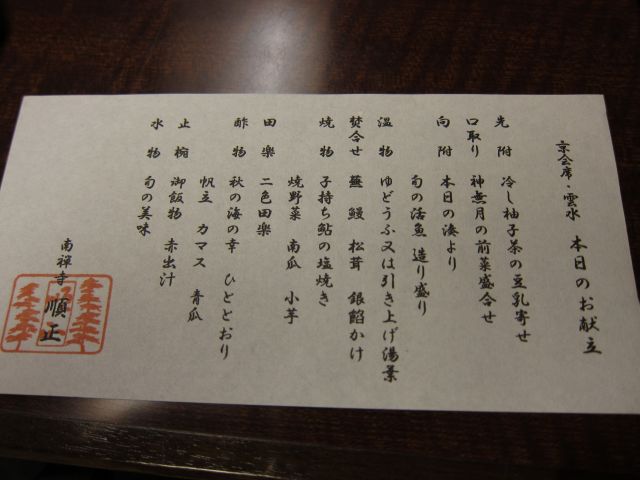 京会席・雲水 本日のお献立
先附 冷し柚子茶の豆乳寄せ
口取り 神無月の前菜盛合せ
向附 本日の湊より
旬の活魚 造り盛り
温物 ゆどうふ又は引き上げ湯葉
焚合せ 蕪 鰻 松茸 銀餡かけ
焼物 子持ち鮎の塩焼き
焼野菜 南瓜 小芋
田楽 二色田楽
酢物 秋の海の幸 ひととおり
帆立 カマス 青瓜
止椀 御飯物 赤出汁
水物 旬の美味
南禅寺 順正